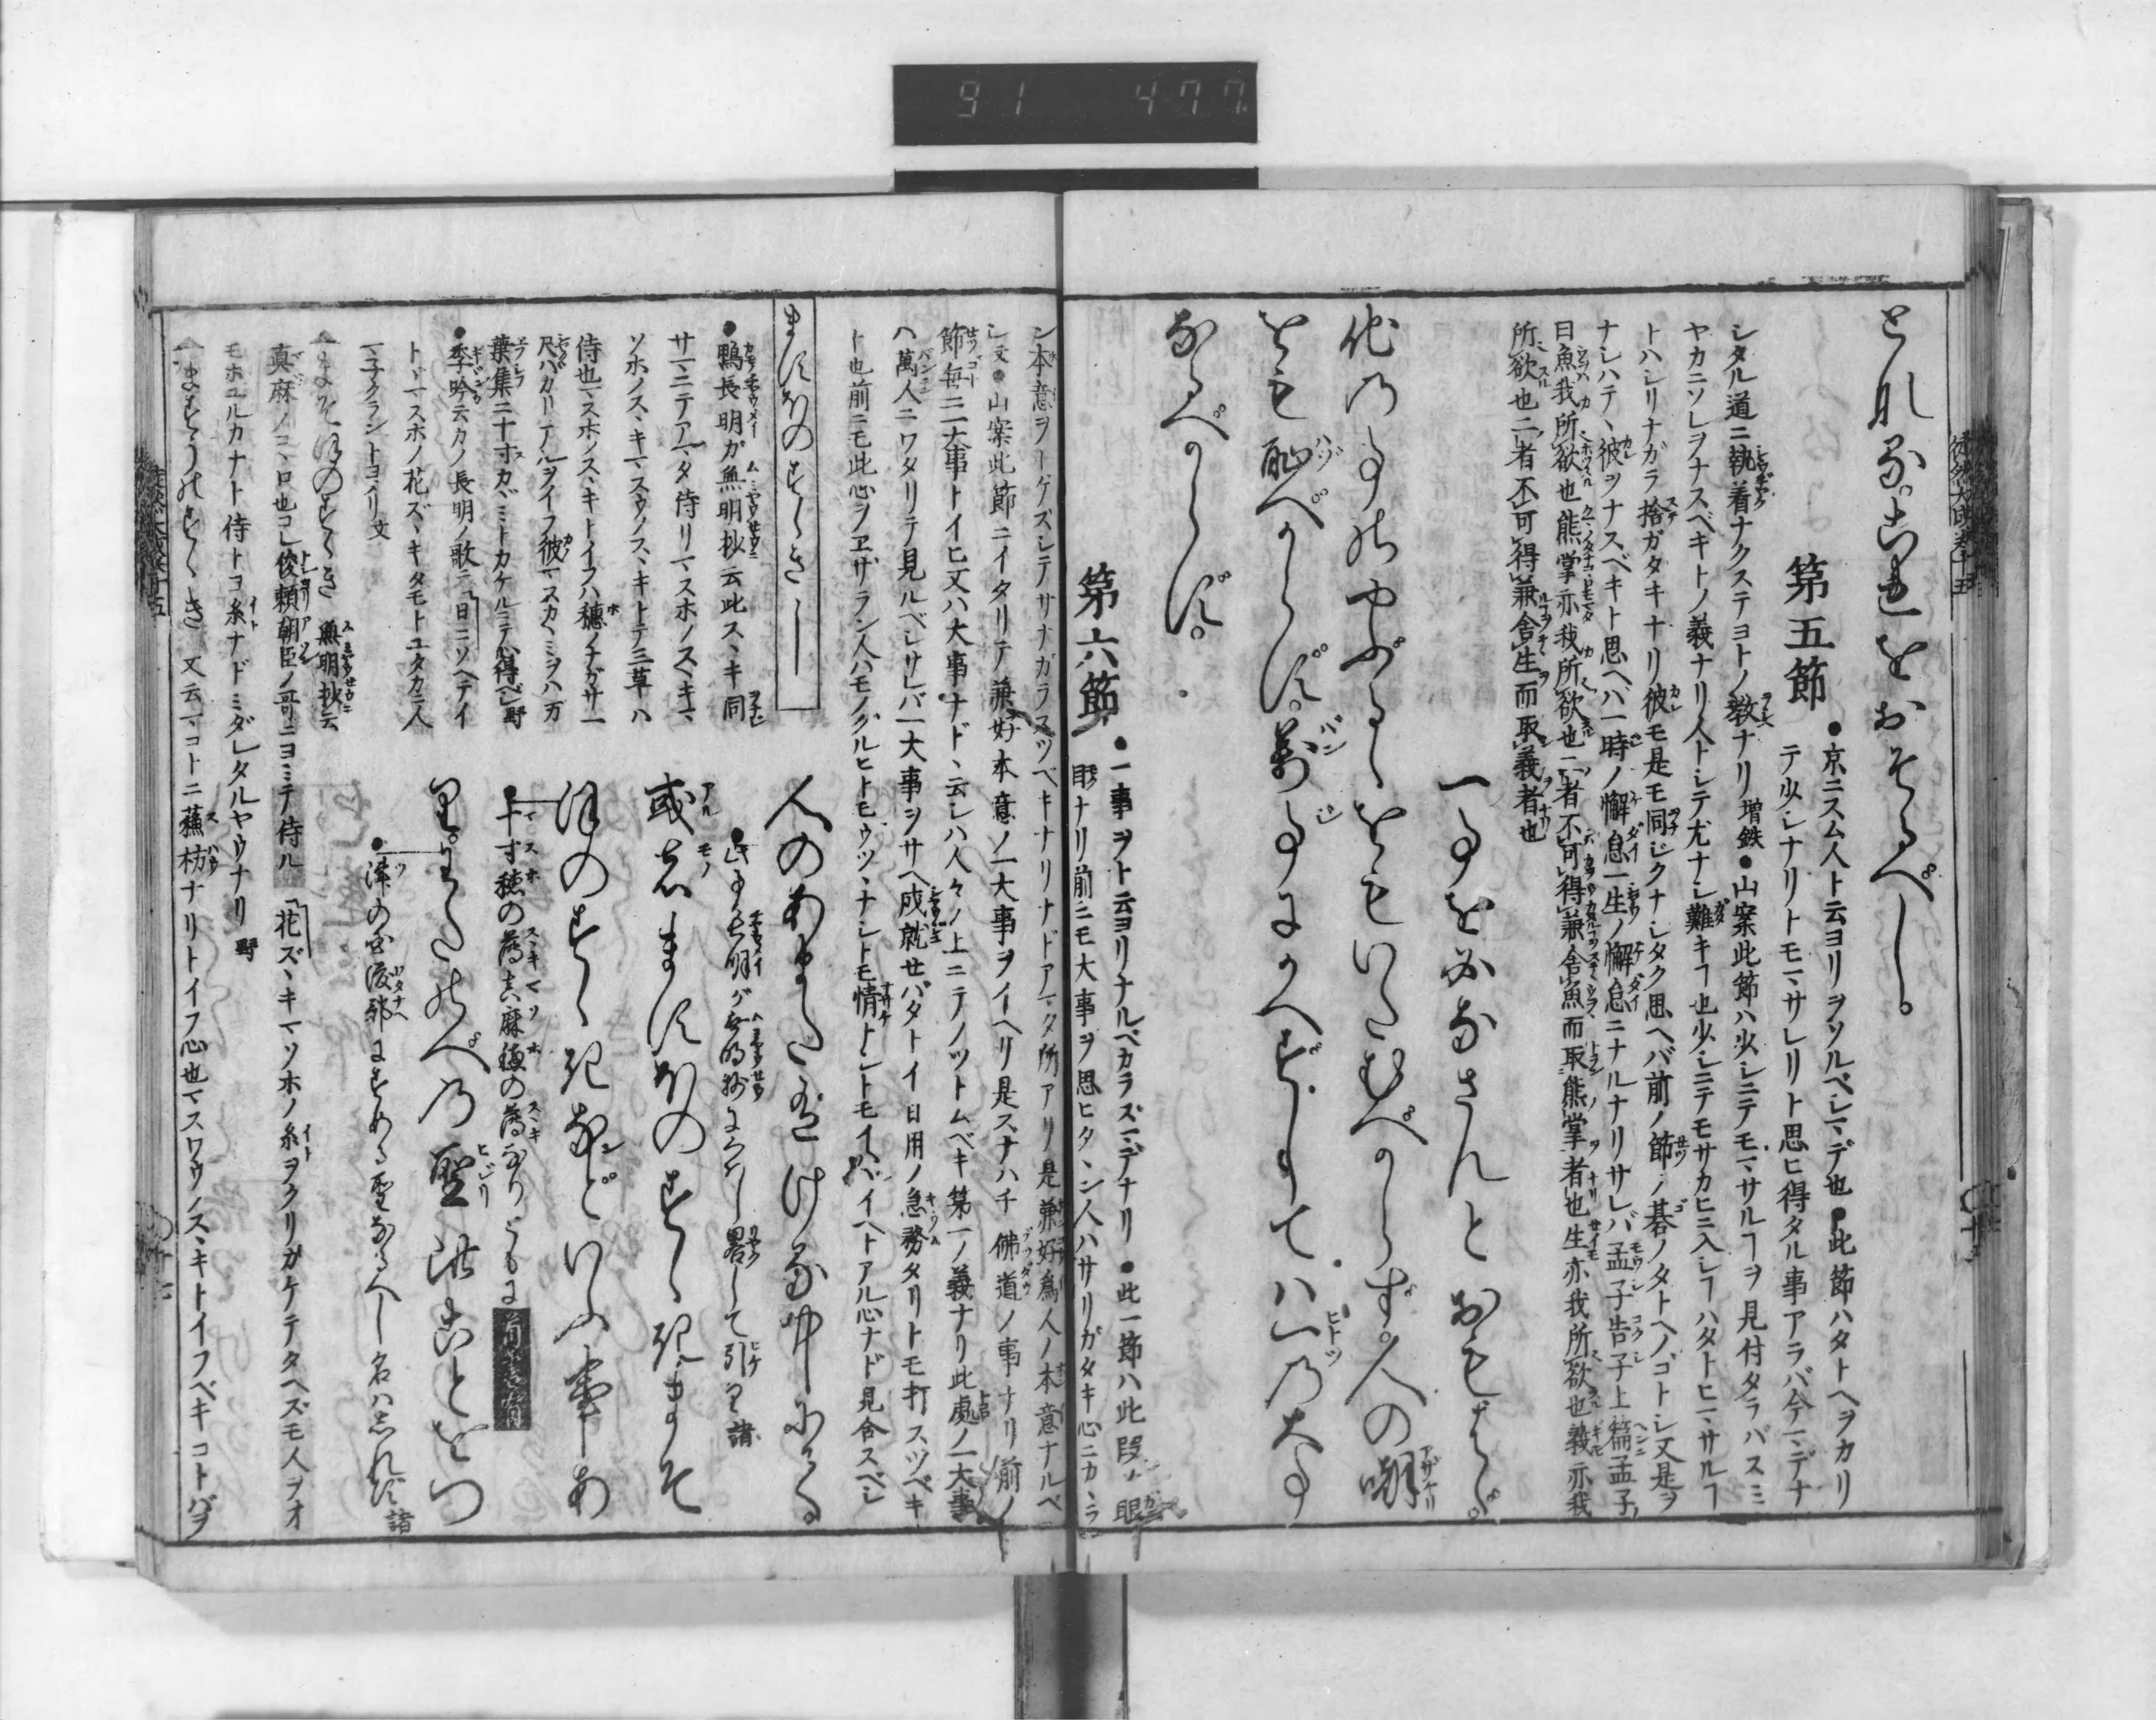 91 477
とれる。これをおそるべし。
第五節
●京ニスム人ト云ヨリヲソルベシマデ也●此節ハタトヘヲカリ
テ少シナリトモマサレリト思ヒ得タル事アラバ今マデナ
シタル道ニ執着ナクステヨトノ教ナリ 増鉄●山案此節ハ少シニテモマサルヿヲ見付タラバスミ
ヤカニソレヲナスベキトノ義ナリ人トシテ尤ナシ難キヿ也少シニテモサカヒニ入シヿハタトヒマサルヿ
トハシリナガラ捨ガタキナリ彼モ是モ同ジクナシタク思ヘバ前ノ節ノ碁ノタトヘノゴトシ又是ヲ
ナシハテ、彼ヲナスベキト思ヘハ一時ノ懈怠一生ノ懈怠ニナルナリサレバ孟子告子上篇孟子
曰魚我所欲也熊掌亦我所欲也二者不可得兼舎魚而取熊掌者也生亦我所欲也義亦我
所欲也二者不可得兼舎生而取義者也
一事を必なさんとおもはゞ。
他の事のやぶるゝをもいたむべからず。人の嘲
をも恥べからず。萬事にかへずしては一の大事
なるべからず。
第六節
●一事ヲト云ヨリナルベカラズマデナリ●此一節ハ此段ノ眼
目ナリ前ニモ大事ヲ思ヒタヽン人ハサリガタキ心ニカヽラ
ン本意ヲトゲズシテサナガラスツベキナリナドアマタ所アリ是兼好為人ノ本意ナルベ
シ文●山案此節ニイタリテ兼好本意ノ一大事ヲイヘリ是スナハチ佛道ノ事ナリ前ノ
節毎ニ二大事トイヒ又ハ大事ナドヽ云シハ人々ノ上ニテノツトムベキ第一ノ義ナリ此處ノ一大事
ハ萬人ニワタリテ見ルベシサレバ一大事ヲサヘ成就せバタトイ日用ノ急務タリトモ打スツベキ
ト也前ニモ此心ヲヱザラン人ハモノグルヒトモウツヽナシトモ情ナシトモイヘバイヘトアル心ナド見合スベシ
人のあまた有ける中にてある
ますほのすゝきー
●鴨長明ガ無明抄云此スヽキ同
サマニテアマタ侍リマスホノスヽキマ
ソホノスヽキマスウノスヽキトテ三草ハ
侍也マスホノスヽキトイフハ穂ノナガサ一
尺バカリアルヲイフ彼マスカヾミヲハ万
葉集ニ十寸カヾミトカケルニテ心得ベシ野
●季吟云カノ長明ノ歌ニ「日ニソヘテイ
トヾマスホノ花ズヽキタモトユタカニ人
マ子クラシトヨメリ 文
●此事長明が無明抄にくわし畧して引り 諸
或者ますほのすゝきまそ
ほのすゝきなどいふ事あ
十寸穂の薄真麻穂の薄なりともに
り。わたのべの聖此ことをつ
●津の國渡邊にすめる聖なるべし名ハしれず 諸
まそほのすゝき 無明抄云
真麻ノコヽロ也コレ俊頼朝臣ノ哥ニヨミテ侍ル「花ズヽキマソホノ糸ヲクリカケテタヘズモ人ヲオ
モホユルカナト侍トコ糸ナドミダレタルヤウナリ 野
まそうのすゝき 又云マコトニ蘓枋ナリトイフ心也マスワウノスヽキトイフベキコトバヲ